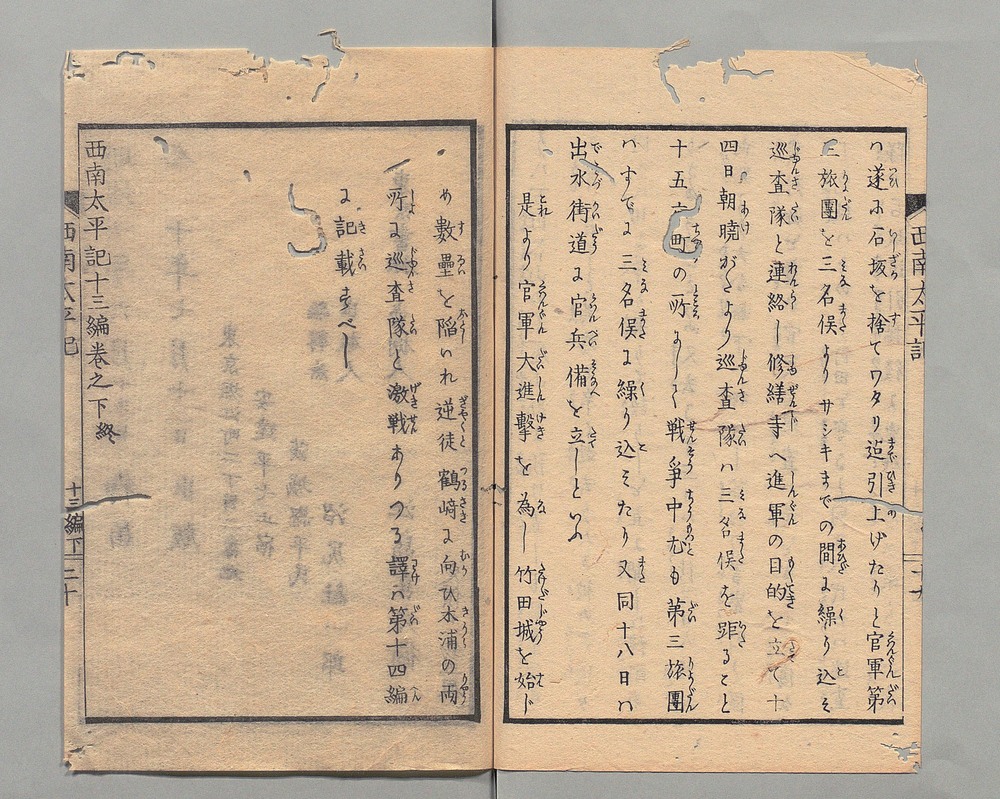 ハ遂に石坂を捨てワタリ迠引上げたりと官軍第
三旅團を三名俣よりサシキまでの間に繰り込み
巡査隊と連絡し修繕寺へ進軍の目的を立て十
四日朝暁がたより巡査隊ハ三名俣を距ること
十五六町の所にして戦爭中尤も第三旅團
ハすでに三名俣に繰り込みたり又同十八日ハ
出水街道に官兵備を立しといふ
是より官軍大進擊を為し竹田城を始じ
め數壘を陥いれ逆徒鶴﨑に向ひ木浦の両
所に巡査隊と激戦ありつる譯ハ第十四編
に記載すべし
西南太平記十三編巻之下終
西南太平記
十三編下
二十